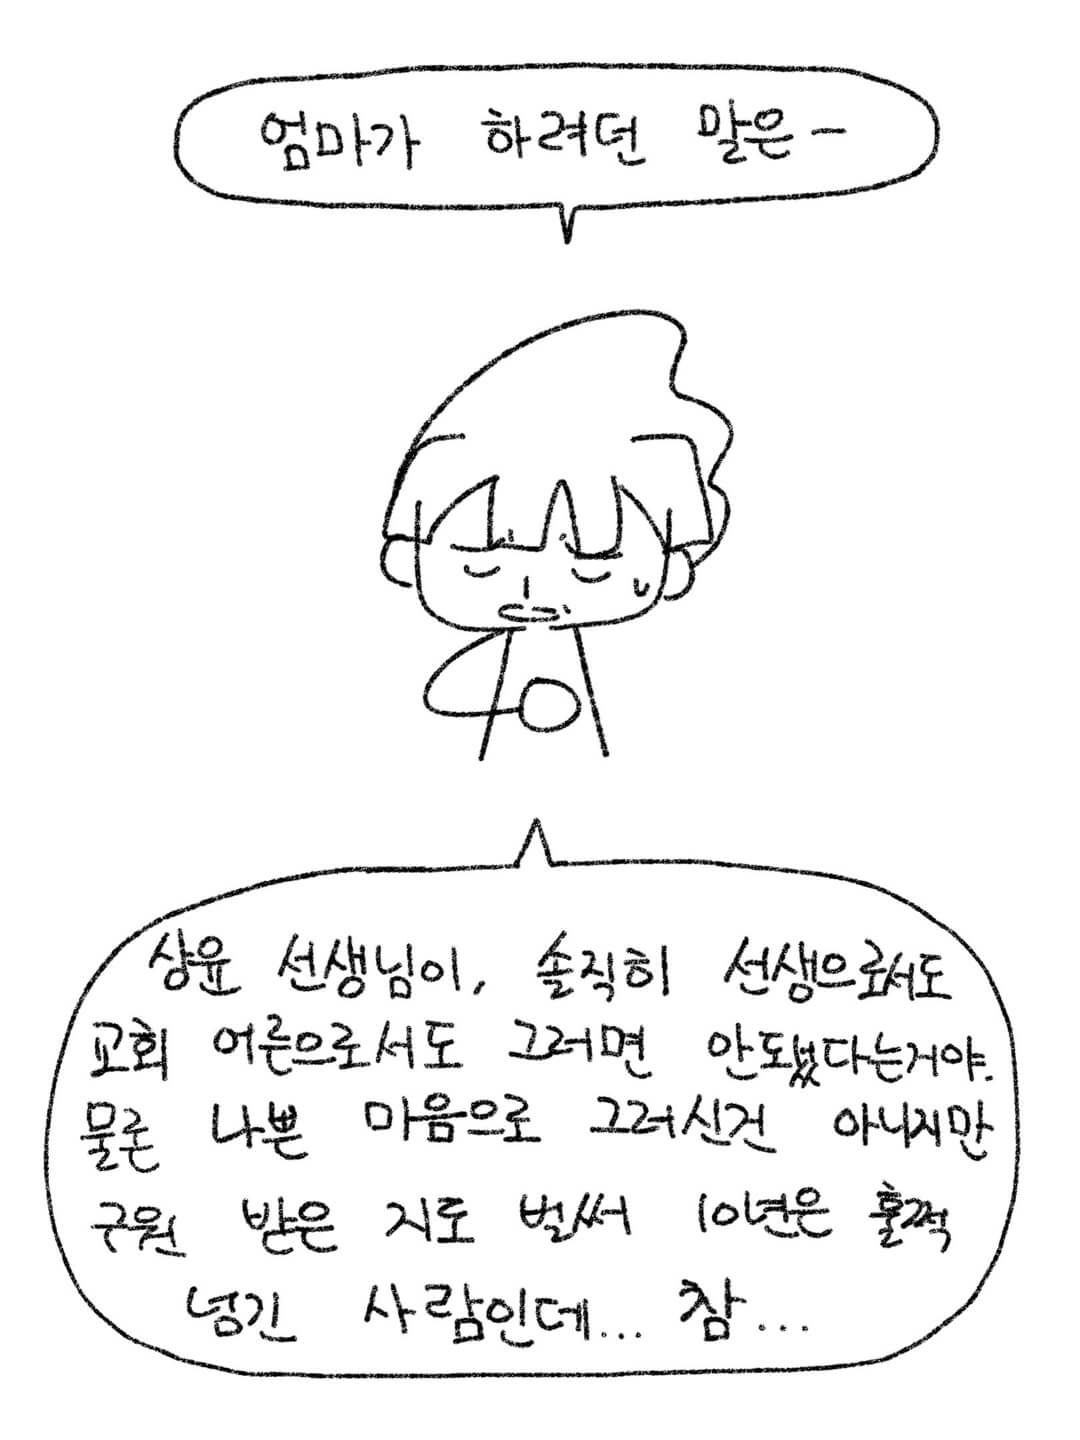 엄마가 하려던 말은-
상윤 선생님이, 솔직히 선생으로서도
교회 어른으로서도 그러면 안됐다는거야.
물론 나쁜 마음으로 그러신건 아니지만
구원 받은 지도 벌써 10년은 훌쩍
넘긴 사람인데... 참...